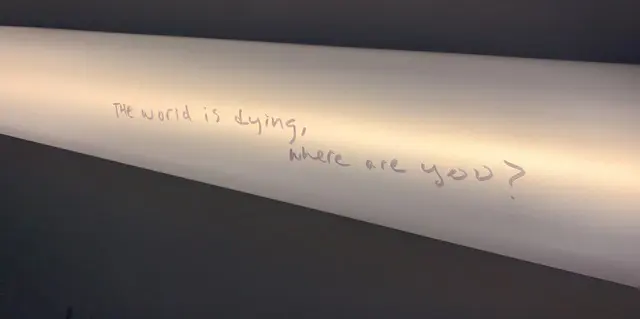 THE world is dying,
where are you?